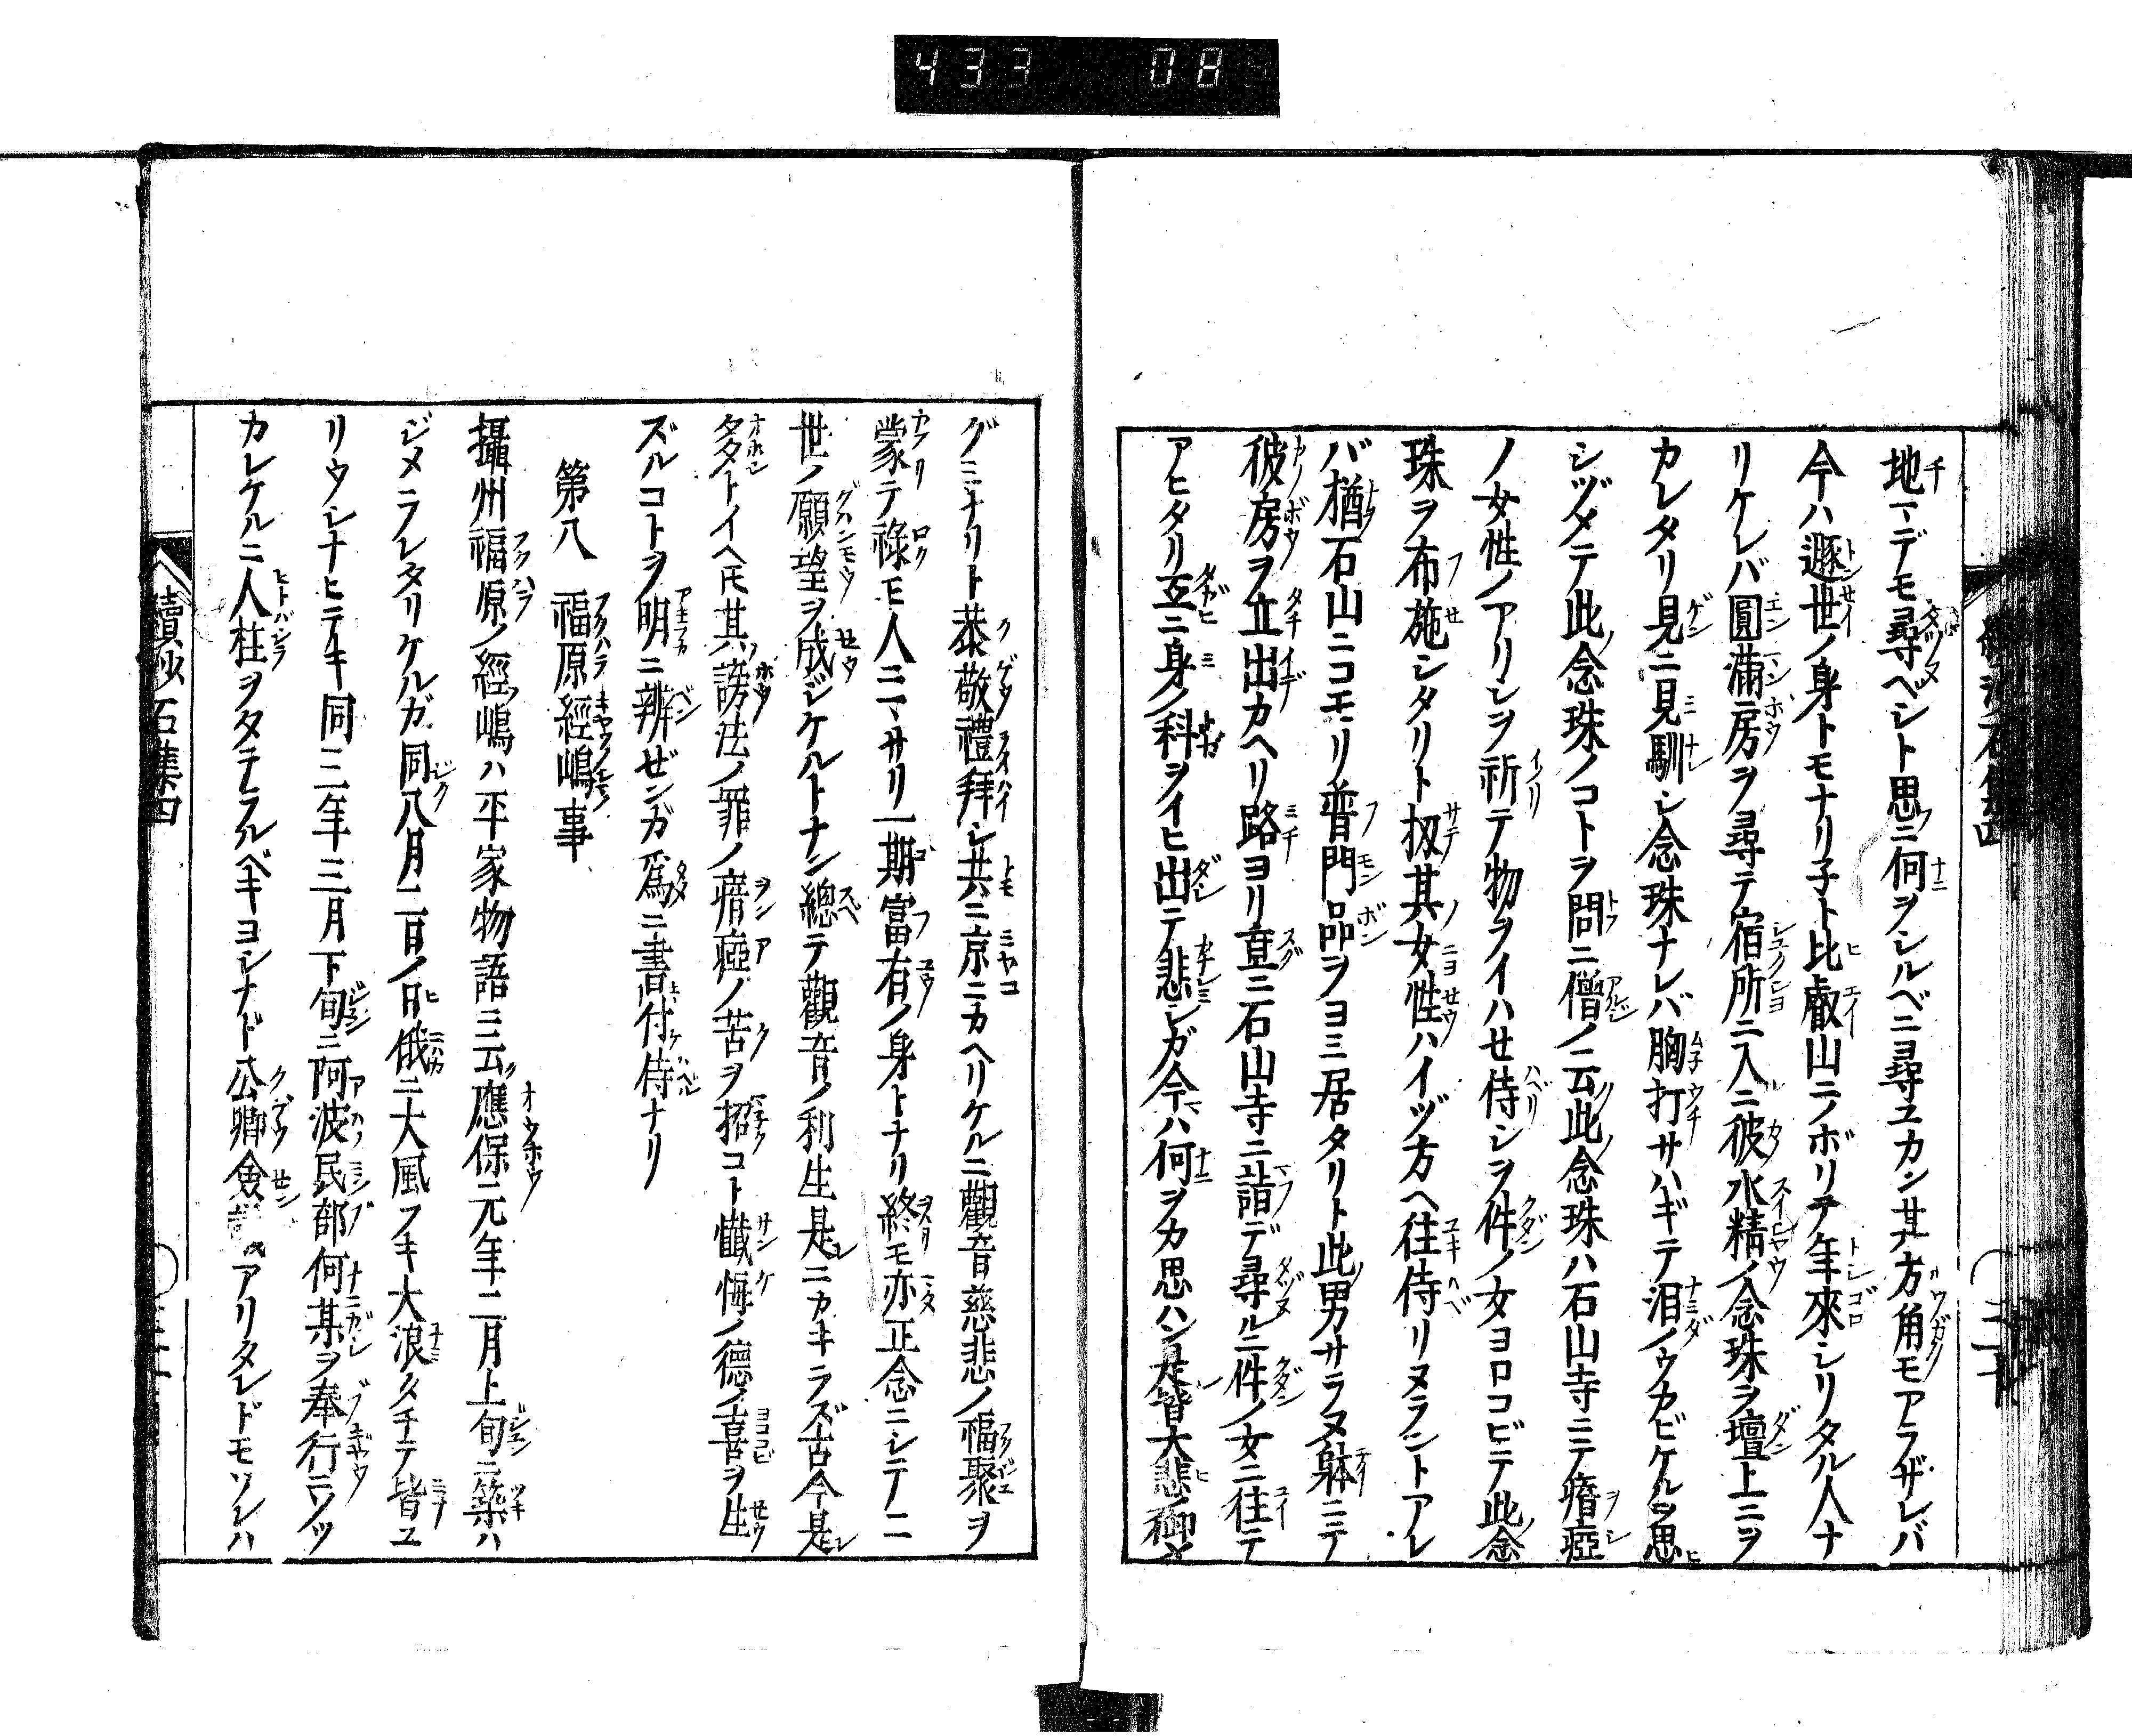 433 08
地マデモ尋ベシト思ニ何ヲシルベニヨ尋ユカン其方角モアラザレバ
今ハ遯世ノ身トモナリ子ト比叡山ニノボリテ年來シリタル人ナ
リケレバ圓滿房ヲ尋テ宿所ニ入ニ彼水精ノ念珠ヲ壇上ニヲ
カレタリ見ニ見馴シ念珠ナレバ胸打サハギテ泪ノウカビケルヲ思
シヅメテ此念珠ノコトヲ問ニ僧ノ云此念珠ハ石山寺ニテ瘖瘂
ノ女性ノアリシヲ祈テ物ヲイハせ侍シヲ件ノ女ヨロコビテ此念
珠ヲ布施シタリト扨其女性ハイヅ方ヘ往侍リヌラントアレ
バ猶石山ニコモリ普門品ヲヨミ居タリト此男サラヌ躰ニテ
彼房ヲ立出カヘリ路ヨリ直ニ石山寺ニ詣デ尋ルニ件ノ女ニ往テ
アヒタリ互ニ身ノ科ヲイヒ出テ悲シガ今ハ何ヲカ思ハン是皆大悲ノ御メ
グミナリト恭敬禮拜シ共ニ京ニカヘリケルニ觀音慈悲ノ福聚ヲ
蒙テ祿モ人ニマサリ一期富有ノ身トナリ終モ亦正念ニシテ二
世ノ願望ヲ成ジケルトナン總テ觀音ノ利生是ニカキラズ古今是
多トイヘ𪜈其謗法ノ罪ノ瘖瘂ノ苦ヲ招コト懺悔ノ德ノ喜ヲ生
ズルコトヲ明ニ辨ぜンガ爲ニ書付侍ナリ
第八 福原經嶋事
攝州福原ノ經嶋ハ平家物語ニ云應保元年二月上旬ニ築ハ
ジメラレタリケルガ同八月二日ノ日俄ニ大風フキ大浪タチテ皆ユ
リウシナヒニキ同三年三月下旬ニ阿波民部何某ヲ奉行ニツツ
カレケルニ人柱ヲタテラルベキヨシナド公卿僉議アリタレドモソレハ
續沙石集四